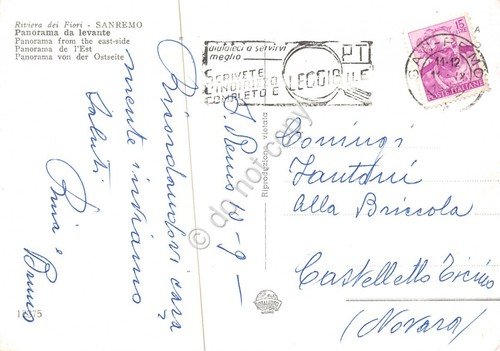 Riviera dei Fiori - SANREMO
Panorama da levante
Panorama from the east-side
Panorama de l'Est
Panorama von der Ostseite
aiutateci a servirvi
meglio
SCRIVETE
L'INDIRIZZO
COMPLETO E LEGGIBILE
PT
11-12
15
POSTE ITALIANE
A
S. Remo 10-9-
Ricordandovi cara
mente inviamo
Saluti
Pina e
Bruno
Riproduzione vietata
Coniugi
Fantini
Alla Briccola
Castelletto Ticino
(Novara)
do not copy